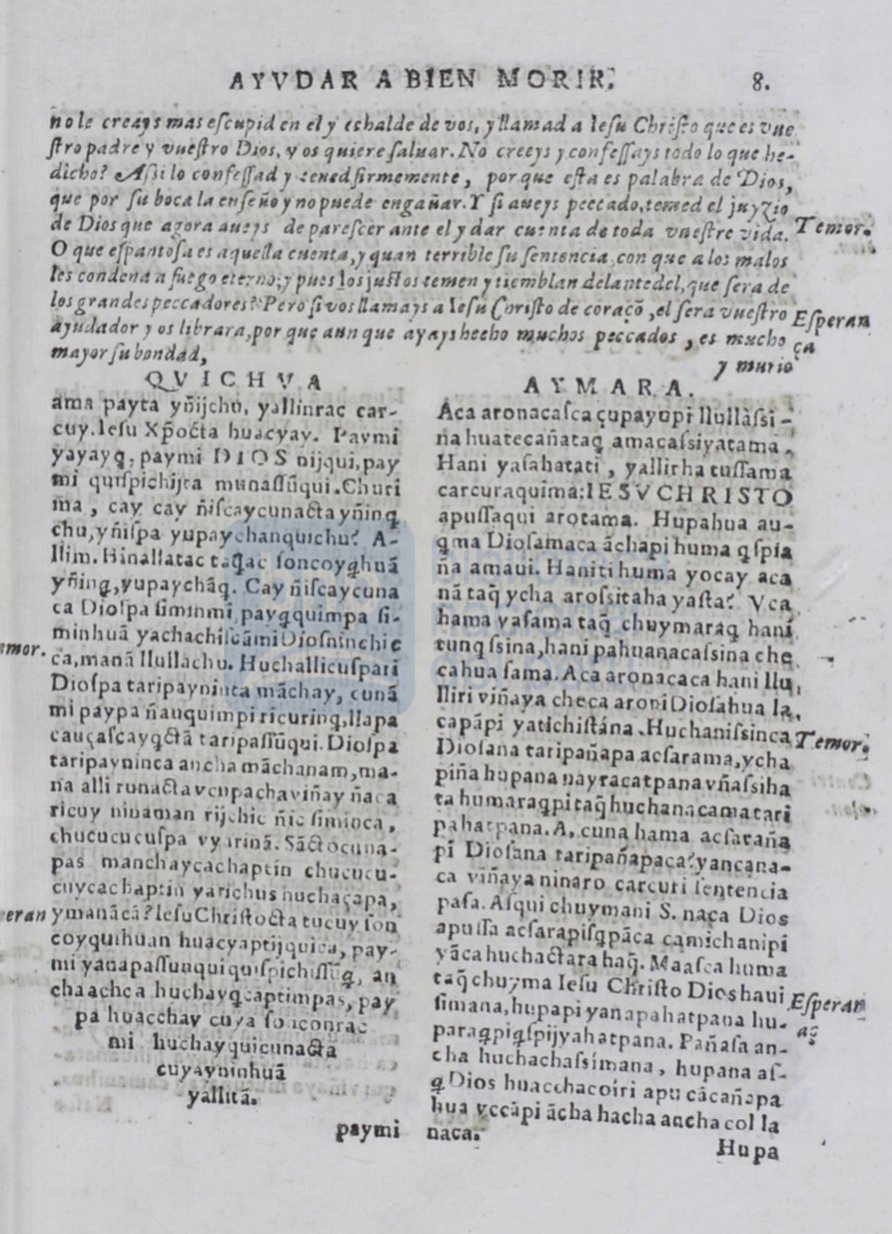 AYVDAR A BIEN MORIR. 8.
no le creays mas eſcupid en el y echalde de vos, y llamad a Ieſu Chriſto que es vue
ſtro padre y vueſtro Dios, y os quiere ſaluar. No creeys y confeſſays todo lo que he-
dicho? Aſsi lo confeſſad y tenedfirmemente, por que eſta es palabra de Dios,
que por ſu boca la enſeño y no puede engañar. Y ſi aueys peccado, temed el juyzio
de Dios que agora aueys de pareſcer ante el y dar cuenta de toda vueſtre vida.
Temor.
O que eſpantoſa es aquella cuenta, y quan terrible ſu ſentencia con que a los malos
les condena a fuego eterno; y pues los juſtos temen y tiemblan delante del, que ſera de
los grandes peccadores? Pero ſi vos llamays a Ieſu Chriſto de coraçõ, el ſera vueſtro
ayudador y os librara, por que aun que ayays hecho muchos peccados, es mucho
mayor ſu bondad,
Eſperan
ça
y murio
QVICHVA
ama payta yñijchu, yallinrac car-
cuy. Ieſu Xp̃octa huacyay. Paymi
yayayq̃, paymi DIOS nijqui, pay
mi quiſpichijta munaſſũqui. Churi
ma, cay cay ñiſcaycunacta yñinq̃
chu, yñiſpa yupaychanquichu? A-
llim. Hinallatac taq̃ac ſoncoyq̃huã
yñinq̃, yupaychãq̃. Cay ñiſcaycuna
ca Dioſpa ſiminmi, payq̃quimpa ſi-
minhuã yachachiſcãmi Dioſninchic
emor.
ca, manã llullachu. Huchallicuſpari
Dioſpa taripayninta mãchay, cunã
mi paypa ñauquimpi ricurinq̃, llapa
cauçaſcayq̃ctã taripaſſũqui. Dioſpa
taripayninca ancha mãchanam, ma-
na alli runacta vcupachaviñay ñaca
ricuy ninaman rijchic ñic ſiminca,
chucucucuſpa vyarinã. Sãctocuna-
pas manchaycachaptin chucucu-
cuycachaptin yarichus huchaçapa,
eran
ymanãcã? Ieſu Chriſtocta tucuy ſon
coyquihuan huacyaptijquica, pay-
mi yanapaſſunqui quiſpichiſſũq̃, an
cha achca huchayq̃captimpas, pay
pa huacchay cuya ſonconrac
mi huchayquicunacta
cuyayninhuã
yallitã.
paymi
AYMARA.
Aca aronacaſca çupayupi llullàſsi-
ña huatecañataq̃ amacaſsiyatama.
Hani yaſahatati, yallirha tuſſama
carcuraquima: IESVCHRISTO
apuſſaqui arotama. Hupahua au-
q̃ma Dioſamaca ãchapi huma q̃ſpia
ña amaui. Haniti huma yocay aca
nã taq̃ ycha aroſsitaha yaſta? Vca
hama yaſama taq̃ chuymaraq̃ hani
tunq̃ ſsina, hani pahuanacaſsina che
cahua ſama. Aca aronacaca hani llu,
lliri viñaya checa aroni Dioſahua la,
capãpi yatichiſtána. Huchaniſsinca
Temor.
Dioſana taripañapa acſarama, ycha
piña hupana nayracatpana vñaſsiha
ta humaraq̃pi taq̃ huchanacamatari
pahatpana. A, cuna hama acſaraña
pi Dioſana taripañapaca? yancana-
ca viñaya ninaro carcuri ſentencia
paſa. Aſqui chuymani S. naça Dios
apuſſa acſarapiſq̃pãca camichanipi
yãca huchactara haq̃. Maaſca huma
taq̃ chuyma Ieſu Chriſto Dioshaui
Eſperan
ſimana, hupapi yanapahatpana hu-
ac̣
paraq̃piq̃ſpijyahatpana. Pañaſa an-
cha huchachaſsimana, hupana aſ-
q̃ Dios huacchacoiri apu cãcañapa
hua vccãpi ãcha hacha ancha col la
naca.
Hupa